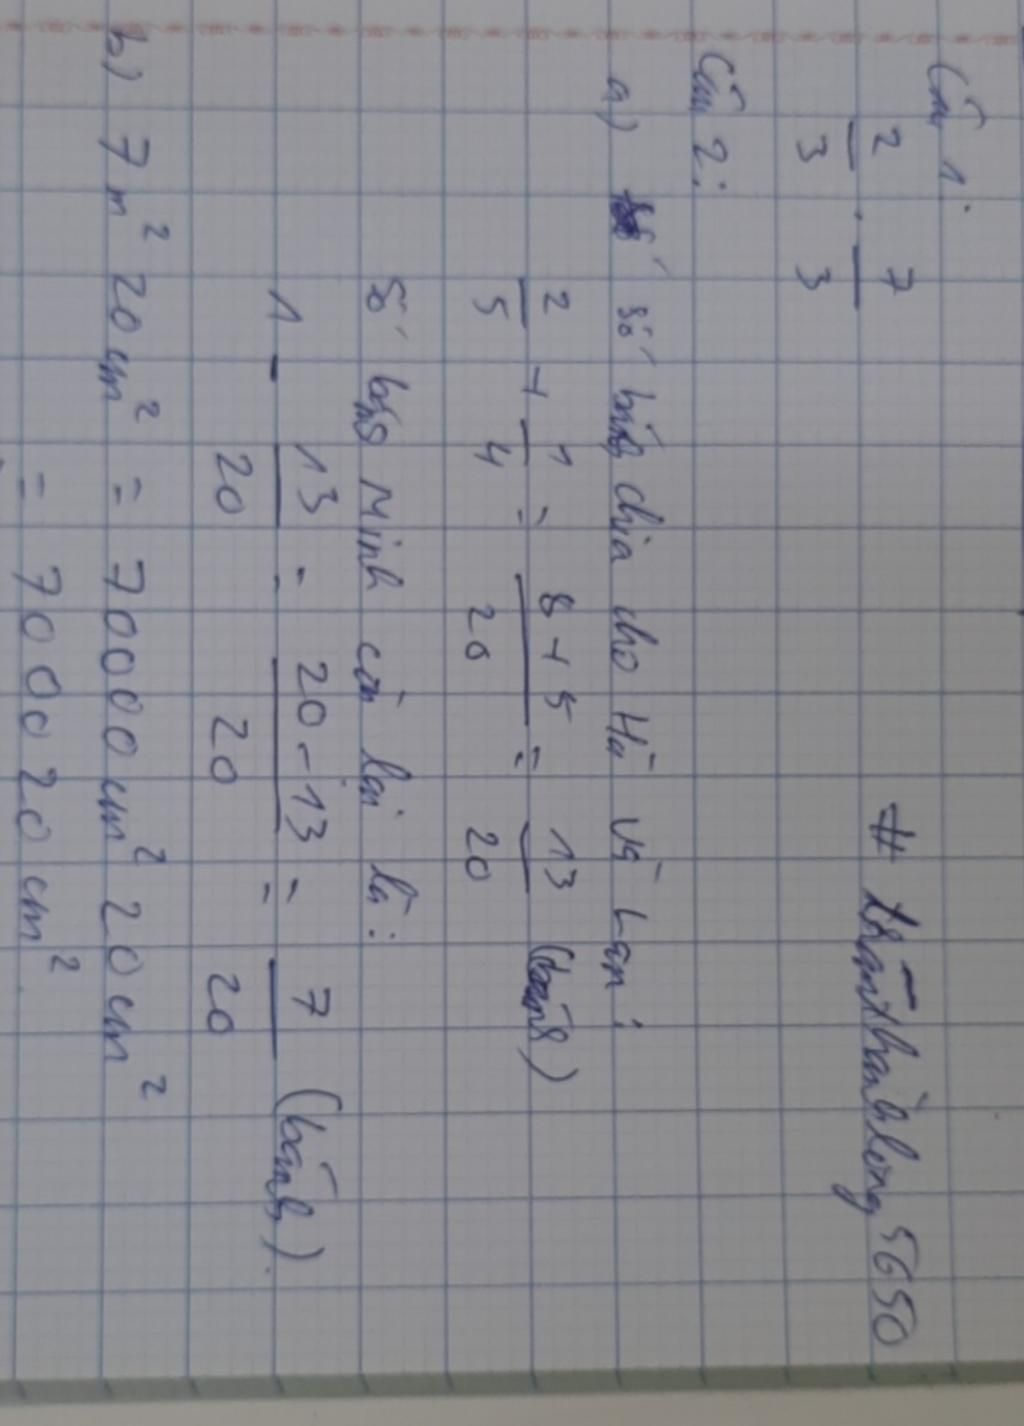 Câu 1:
2/3 . 7/3
# trầnthanhlong5650
Câu 2:
a) số bánh chia cho Hà và Lan:
2/5 + 1/4 = 8+5/20 = 13/20 (bánh)
Số bánh Minh còn lại là:
1 - 13/20 = 20-13/20 = 7/20 (bánh).
b) 7m² 20cm² = 70000cm² 20cm²
= 70020cm²